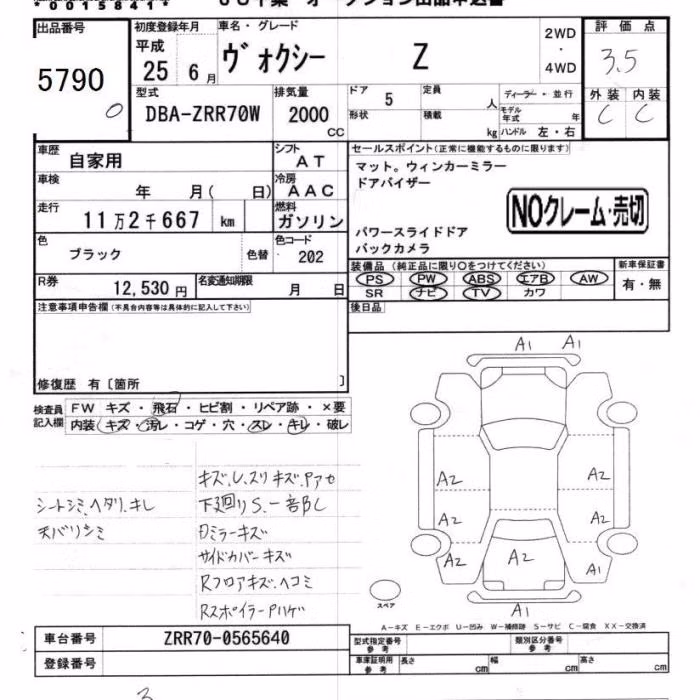 *00158417*
出品番号 初度登録年月 車名・グレード 2WD・4WD 評価点
5790
平成 25年 6月 ヴォクシー Z 3.5
外装 内装
C C
型式 排気量 ドア 定員 ディーラー・並行
DBA-ZRR70W 2000cc 5 人 モデル年式 年
形状 積載 kg ハンドル 左・右
車歴 自家用 シフト AT
車検 年 月( 日) 冷房 AAC
走行 11万2千667 km 燃料 ガソリン
色 ブラック 色替 色コード 202
R券 12,530円 名変通知期限 月 日
セールスポイント(正常に機能するものに限ります)
マット。ウィンカーミラー
ドアバイザー
NOクレーム・売切
パワースライドドア
バックカメラ
装備品(純正品に限り○をつけてください) 新車保証書
PS PW ABS エアB AW 有・無
SR ナビ TV カワ
後日品
注意事項申告欄(不具合内容等は具体的に記入して下さい)
修復歴 有〔箇所 〕
検査員記入欄 FW キズ・飛石・ヒビ割・リペア跡・×要
内装・キズ・汚レ・コゲ・穴・スレ・キレ・破レ
キズ、U、スリキズ、Pアセ
シートシミ、ヘタリ、キレ 下廻りS、一部C
天バリシミ
ミラーキズ
サイドカバーキズ
Rフロアキズ、ヘコミ
RスポイラーPハゲ
A1 A1
A2 A2
A2 A2
A2 A2 A1
A1
スペア
A-キズ E-エクボ U-凹み W-補修跡 S-サビ C-腐食 XX-交換済
車台番号 ZRR70-0565640
登録番号
型式指定番号 参考 類別区分番号 参考
車庫証明用 参考 長さ cm 幅 cm 高さ cm
3